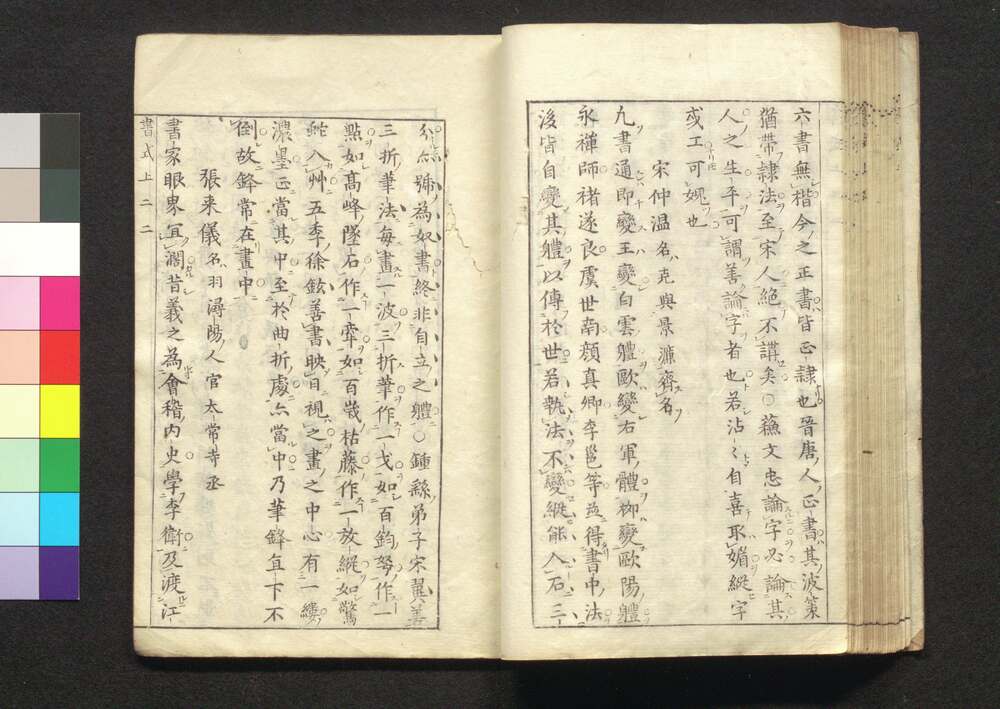 六書無楷今之正書皆正隷也晉唐人正書其波策
猶帶隷法至宋人絶不講矣○蘓文忠論字必論其
人之生平可謂善論字者也若沾〻自喜取媚縱字
或工可媿也
宋仲温名克與景濂齊名
凢書通即變王變白雲軆歐變右軍體柳變歐陽軆
永禅師褚遂良虞世南顔真卿李邕等並得書中法
後皆自變其軆以傳於世若執法不變縱能入石三
分亦號為奴書終非自立之軆○鍾繇弟子宋翼善
三折筆法毎畫一波三折筆作一戈如百鈞弩作一
點如高峰墜石作一牽如百歳枯藤作一放縱如驚
蛇入艸五季徐鉉善書映日視之畫之中心有一縷
濃墨正當其中至於曲折處亦當中乃筆鋒直下不
倒故鋒常在畫中
張来儀名羽潯陽人官太常寺丞
書家眼界宜濶昔羲之為會稽内史學李衛及渡江
書式上二二